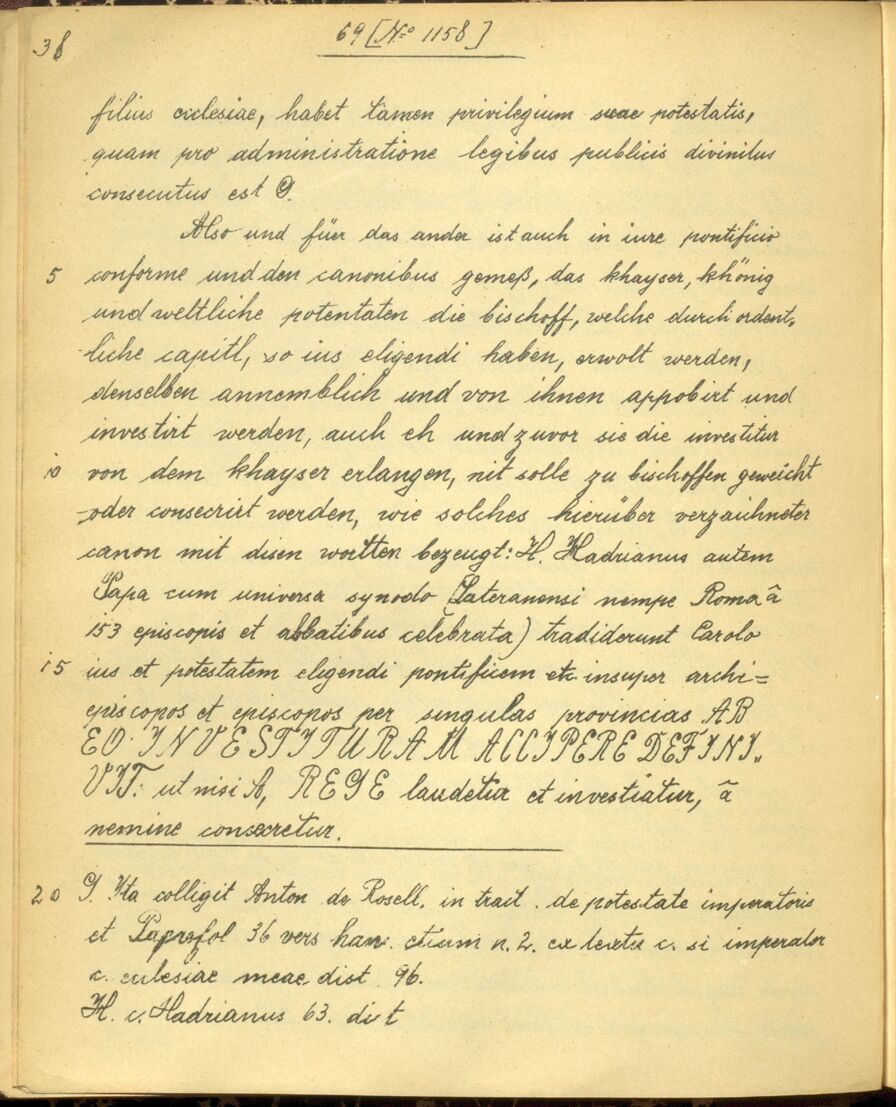 38
69 [No 1158]
filius ecclesiae, habet tamen privilegium suae potestatis,
quam pro administratione legibus publicis divinitus
consecutus est G.
Also und füer das ander ist auch in iure pontificio
5 conforme und den canonibus gemeß, das khayser, khönig
und weltliche potentaten die bischoff, welche durch ordent„
liche capitl, so ius eligendi haben, erwolt werden,
denselben annemblich und von ihnen appobirt und
investirt werden, auch eh und zuvor sie die investitur
10 von dem khayser erlangen, nit solle zu bischoffen geweicht
oder consecrirt werden, wie solches hierüber verzaichneter
canon mit disen wortten bezeugt: H. Hadrianus autem
Papa cum universa synodo (Lateranensi nempe Roma â
153 episcopis et abbatibus celebrata) tradiderunt Carolo
15 ius et potestatem eligendi pontificem etc insuper archi=
episcopos et episcopos per singulas provincias AB
EO INVESTITURAM ACCIPERE DEFINI„
VIT: ut nisi A, REGE laudetur et investiatur, ã
nemine consecretur.
20 G. Ita colligit Anton de Rosell. in trait. de potestate imperatoris
et Papae fol 36 vers han. etiam n. 2. ex textu c. si imperator
c. eclesiae meae dist 96.
H. c. Hadrianus 63. dist